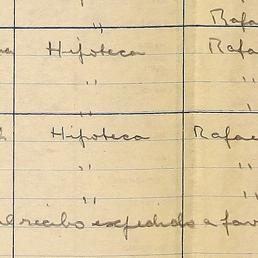 ,, Rafa
Hipoteca Rafa
,, ,,
Hipoteca Rafae
,, ,,
,, ,,
recibo expedido a fav